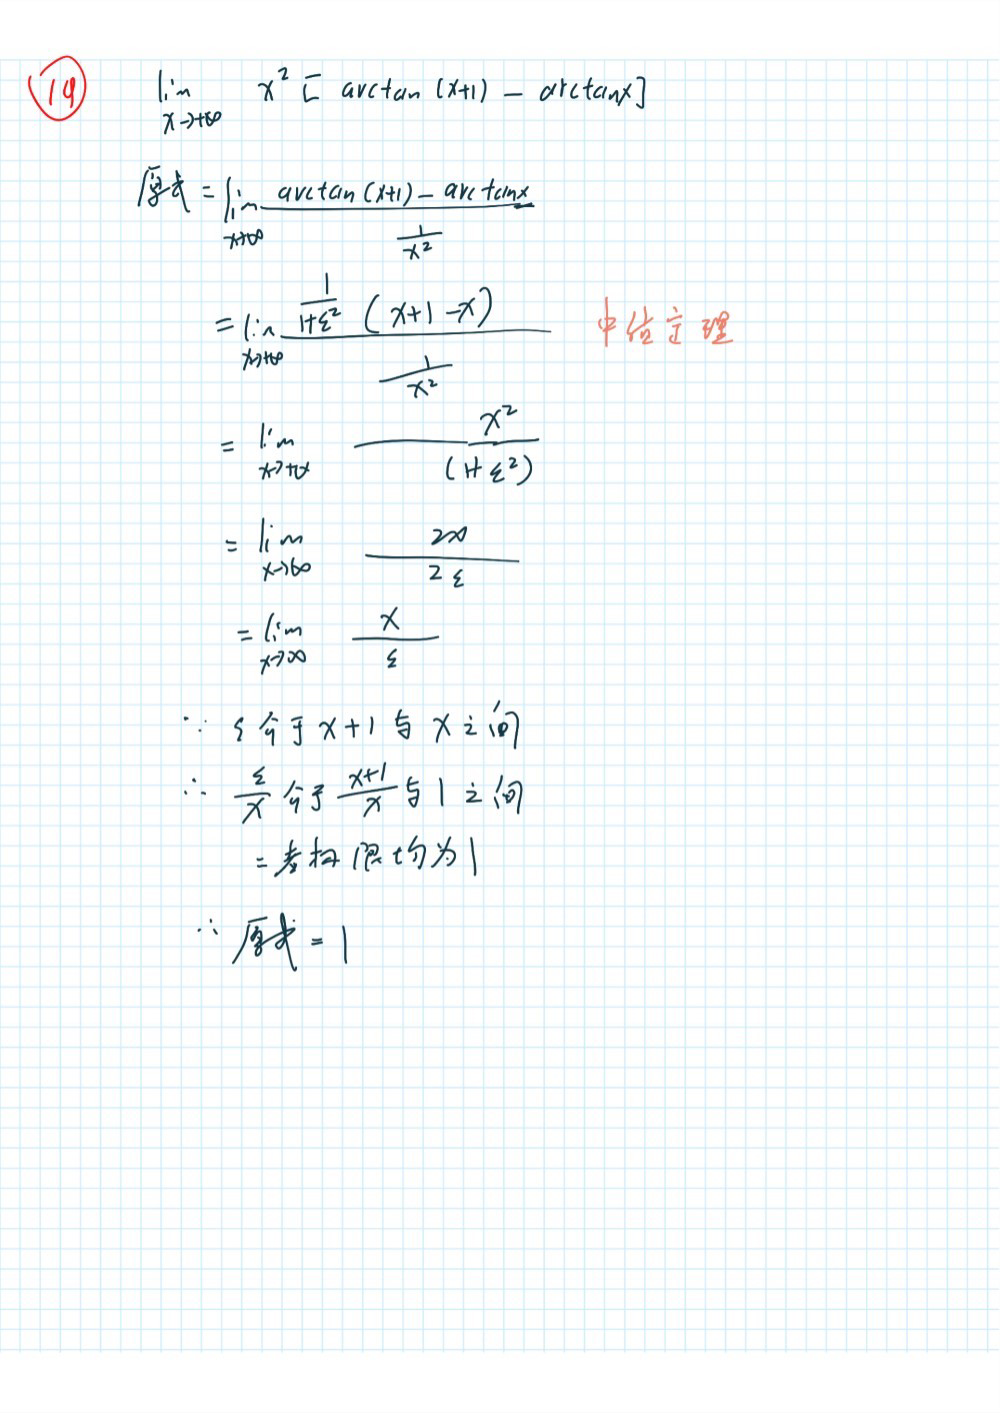 19 lim x→+∞ x² [ arctan (x+1) − arctanx]
原式 = lim x→+∞ arctan (x+1) − arctanx / 1/x²
= lim x→+∞ 1/1+ξ² (x+1−x) / 1/x² 中值定理
= lim x→+∞ x² / (1+ξ²)
= lim x→∞ 2x / 2ξ
= lim x→∞ x / ξ
∵ ξ介于 x+1 与 x 之间
∴ ξ/x 介于 x+1/x 与 1 之间
二者极限均为1
∴ 原式 = 1